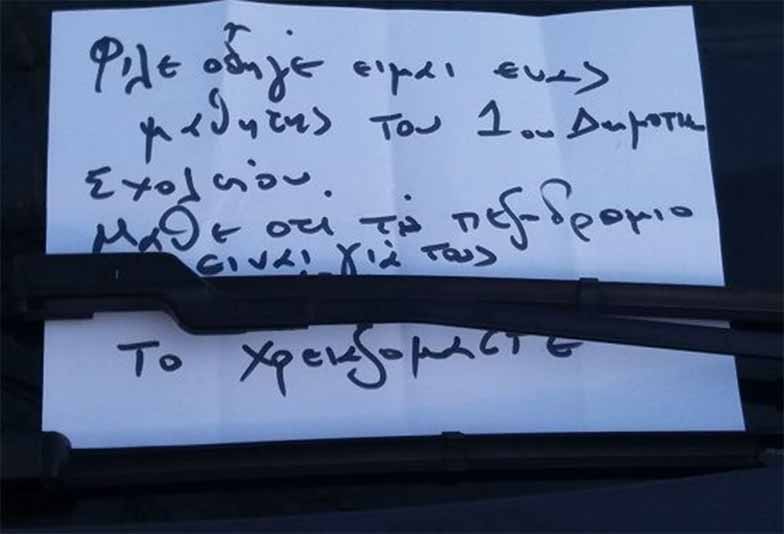 Φιλε οδηγέ ειμαι ενας
μαθητης του 1ου Δημοτικ
Σχολειου.
Μαθε οτι το πεζοδρομιο
ειναι για τους
Το χρειαζομαστε